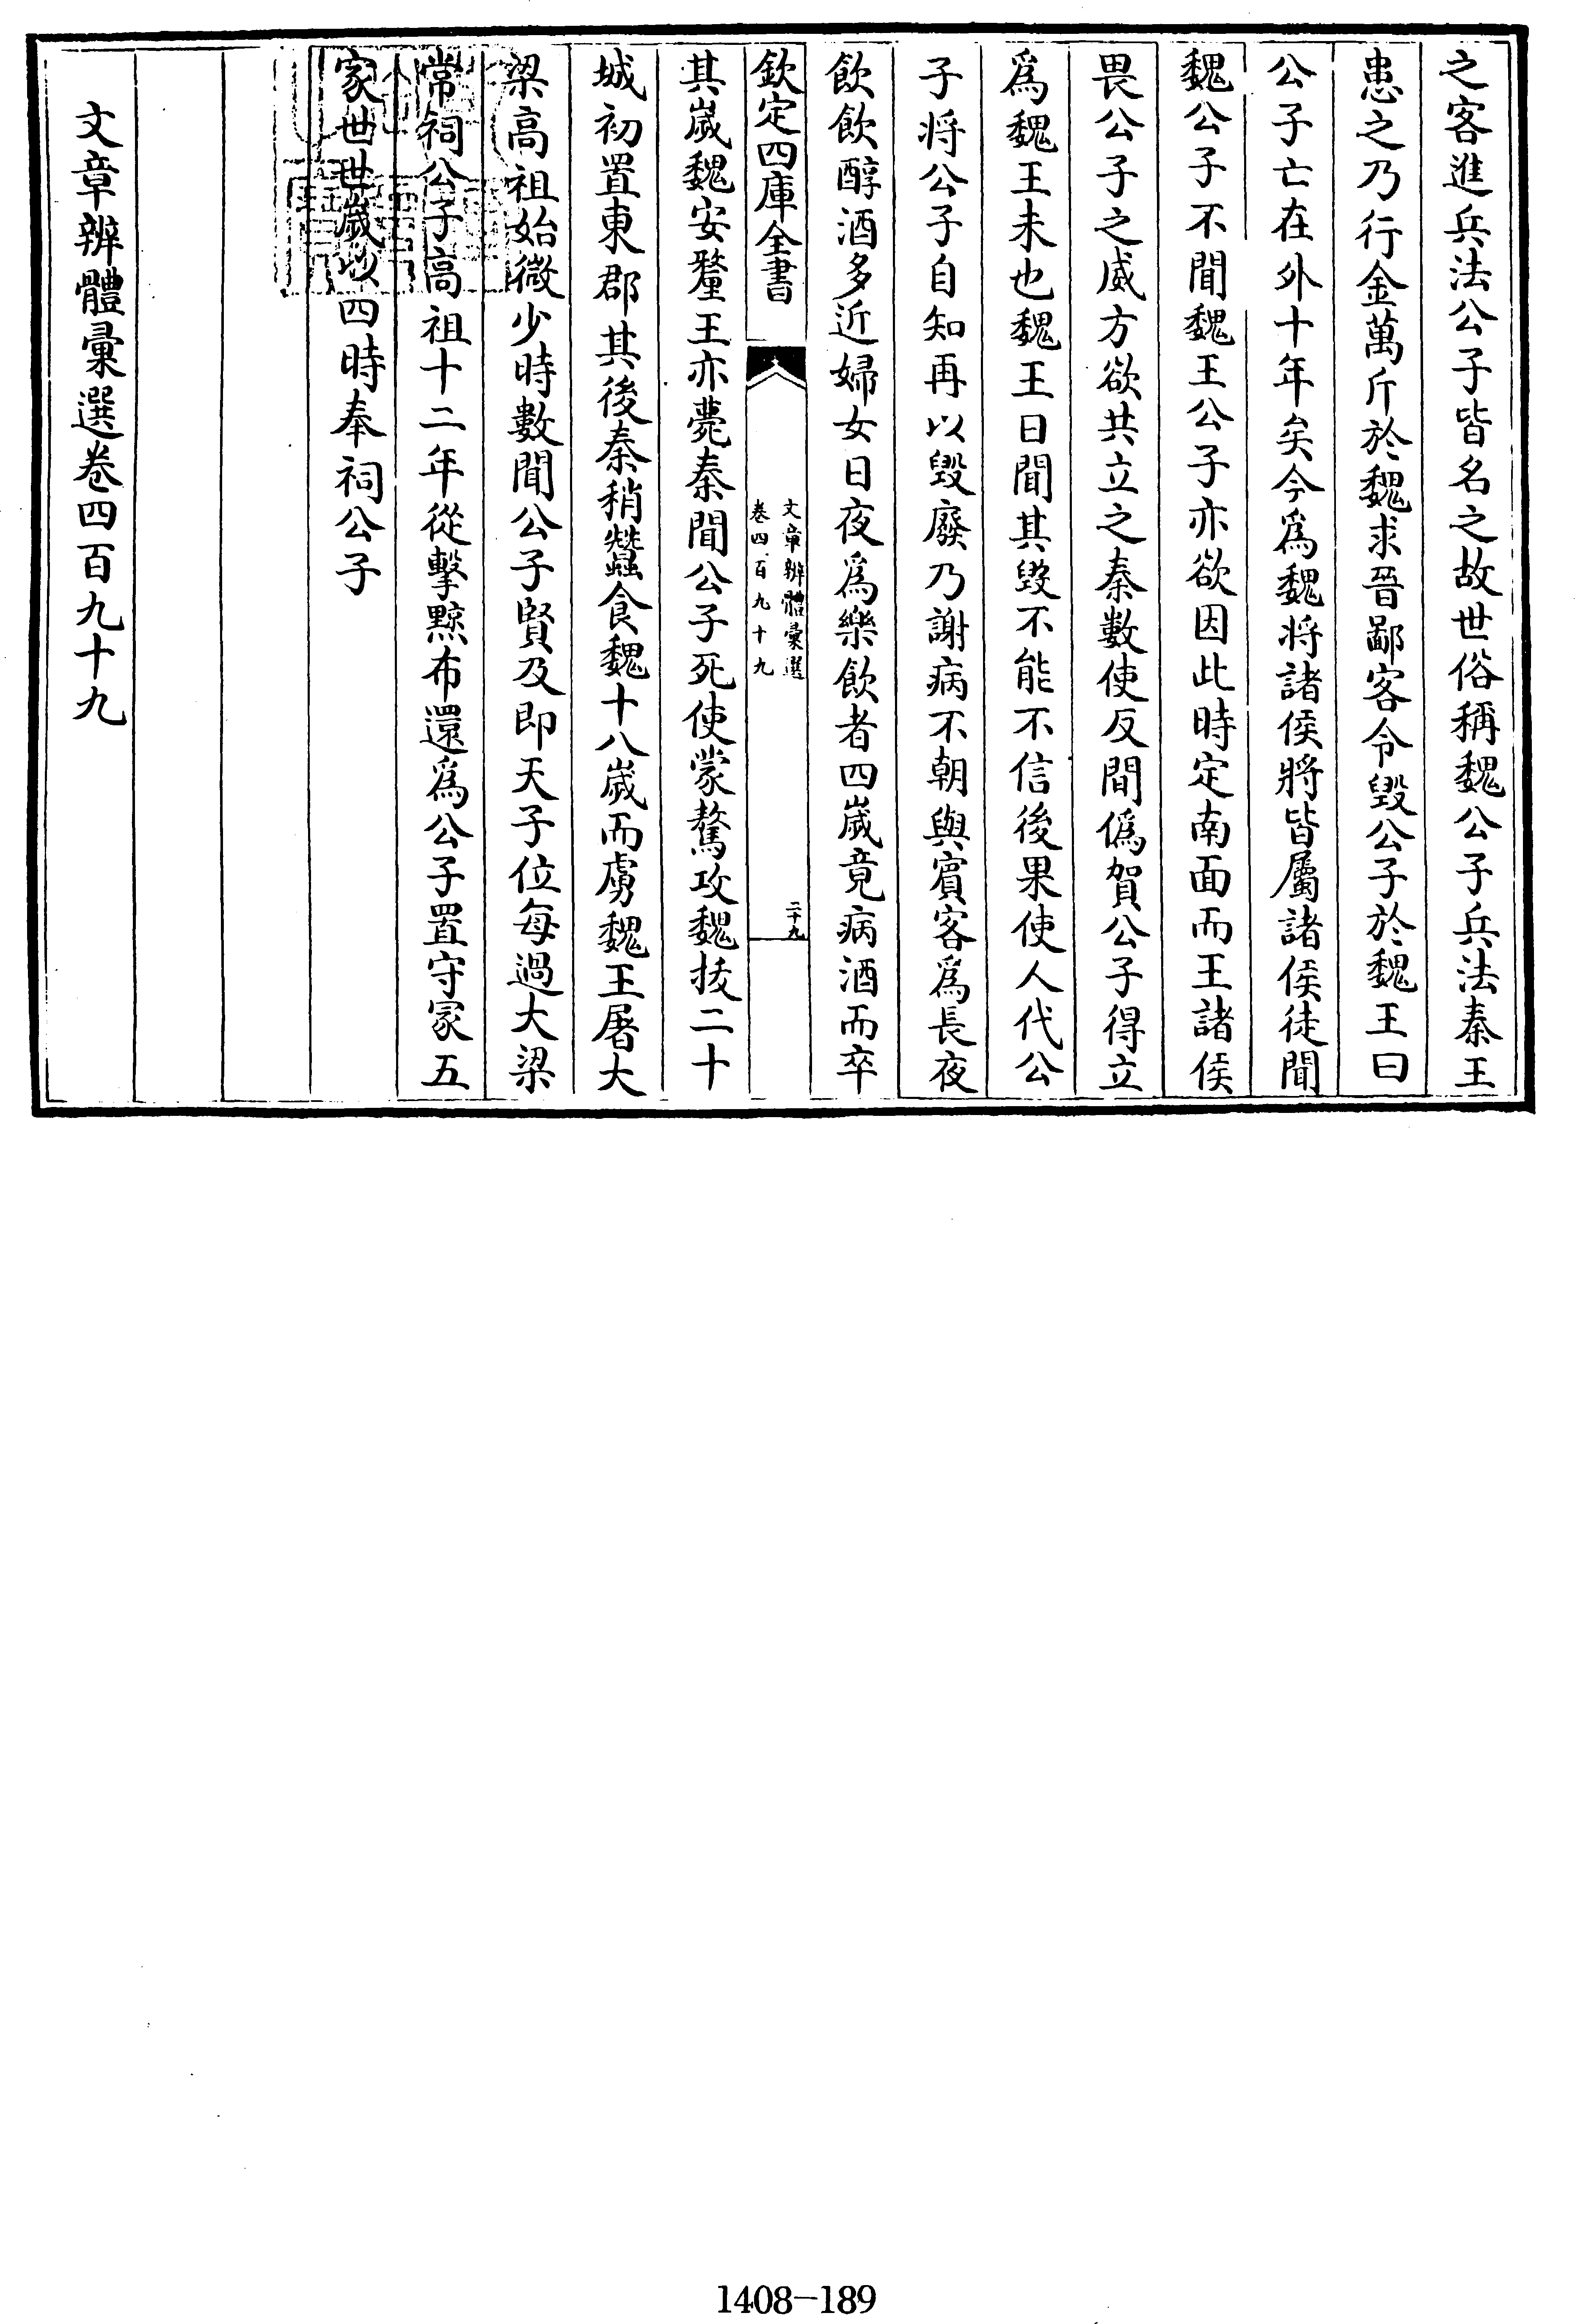 之客進兵法公子皆名之故世俗稱魏公子兵法秦王
患之乃行金萬斤於魏求晉鄙客令毀公子於魏王曰
公子亡在外十年矣今爲魏將諸侯將皆屬諸侯徒聞
魏公子不聞魏王公子亦欲因此時定南面而王諸侯
畏公子之威方欲共立之秦數使反間僞賀公子得立
爲魏王未也魏王日聞其毀不能不信後果使人代公
子將公子自知再以毀廢乃謝病不朝與賓客爲長夜
飲飲醇酒多近婦女日夜爲樂飲者四嵗竟病酒而卒
欽定四庫全書
文章辨體彙選
卷四百九十九
二十九
其嵗魏安釐王亦薨秦聞公子死使蒙驁攻魏拔二十
城初置東郡其後秦稍蠶食魏十八嵗而虜魏王屠大
梁高祖始微少時數聞公子賢及即天子位每過大梁
常祠公子高祖十二年從擊黥布還爲公子置守冡五
家世世嵗以四時奉祠公子
文章辨體彙選卷四百九十九
1408-189